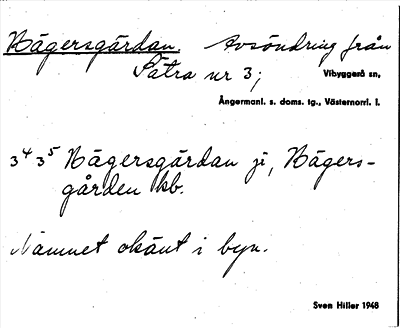 Hägersgårdan. Avsöndring från
Sätra nr 3; Vibyggerå sn,
Ångermanl. s. doms. tg., Västernorrl. l.
3⁴ 3⁵ Hägersgårdan ji, Hägers-
gården kb.
Namnet okänt i byn.
Sven Hiller 1948